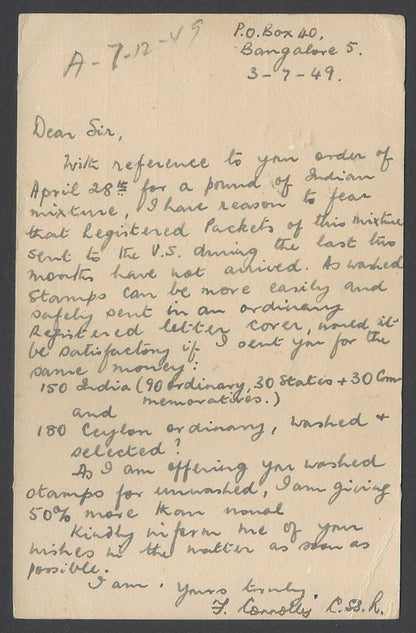 A - 7-12-49
P.O. Box 40,
Bangalore 5.
3-7-49.
Dear Sir,
With reference to your order of
April 28th for a pound of Indian
mixture, I have reason to fear
that Registered Packets of this Mixture
sent to the U.S. during the last two
months have not arrived. As washed
Stamps can be more easily and
safely sent in an ordinary
Registered letter cover, would it
be satisfactory if I sent you for the
same money:
150 India (90 ordinary, 30 States + 30 Com
memoratives.)
and
180 Ceylon ordinary, washed +
selected?
As I am offering you washed
stamps for unwashed, I am giving
50% more than usual
Kindly inform me of your
wishes in the matter as soon as
possible.
I am. Yours truly,
F. Connolly, C.SS.R.